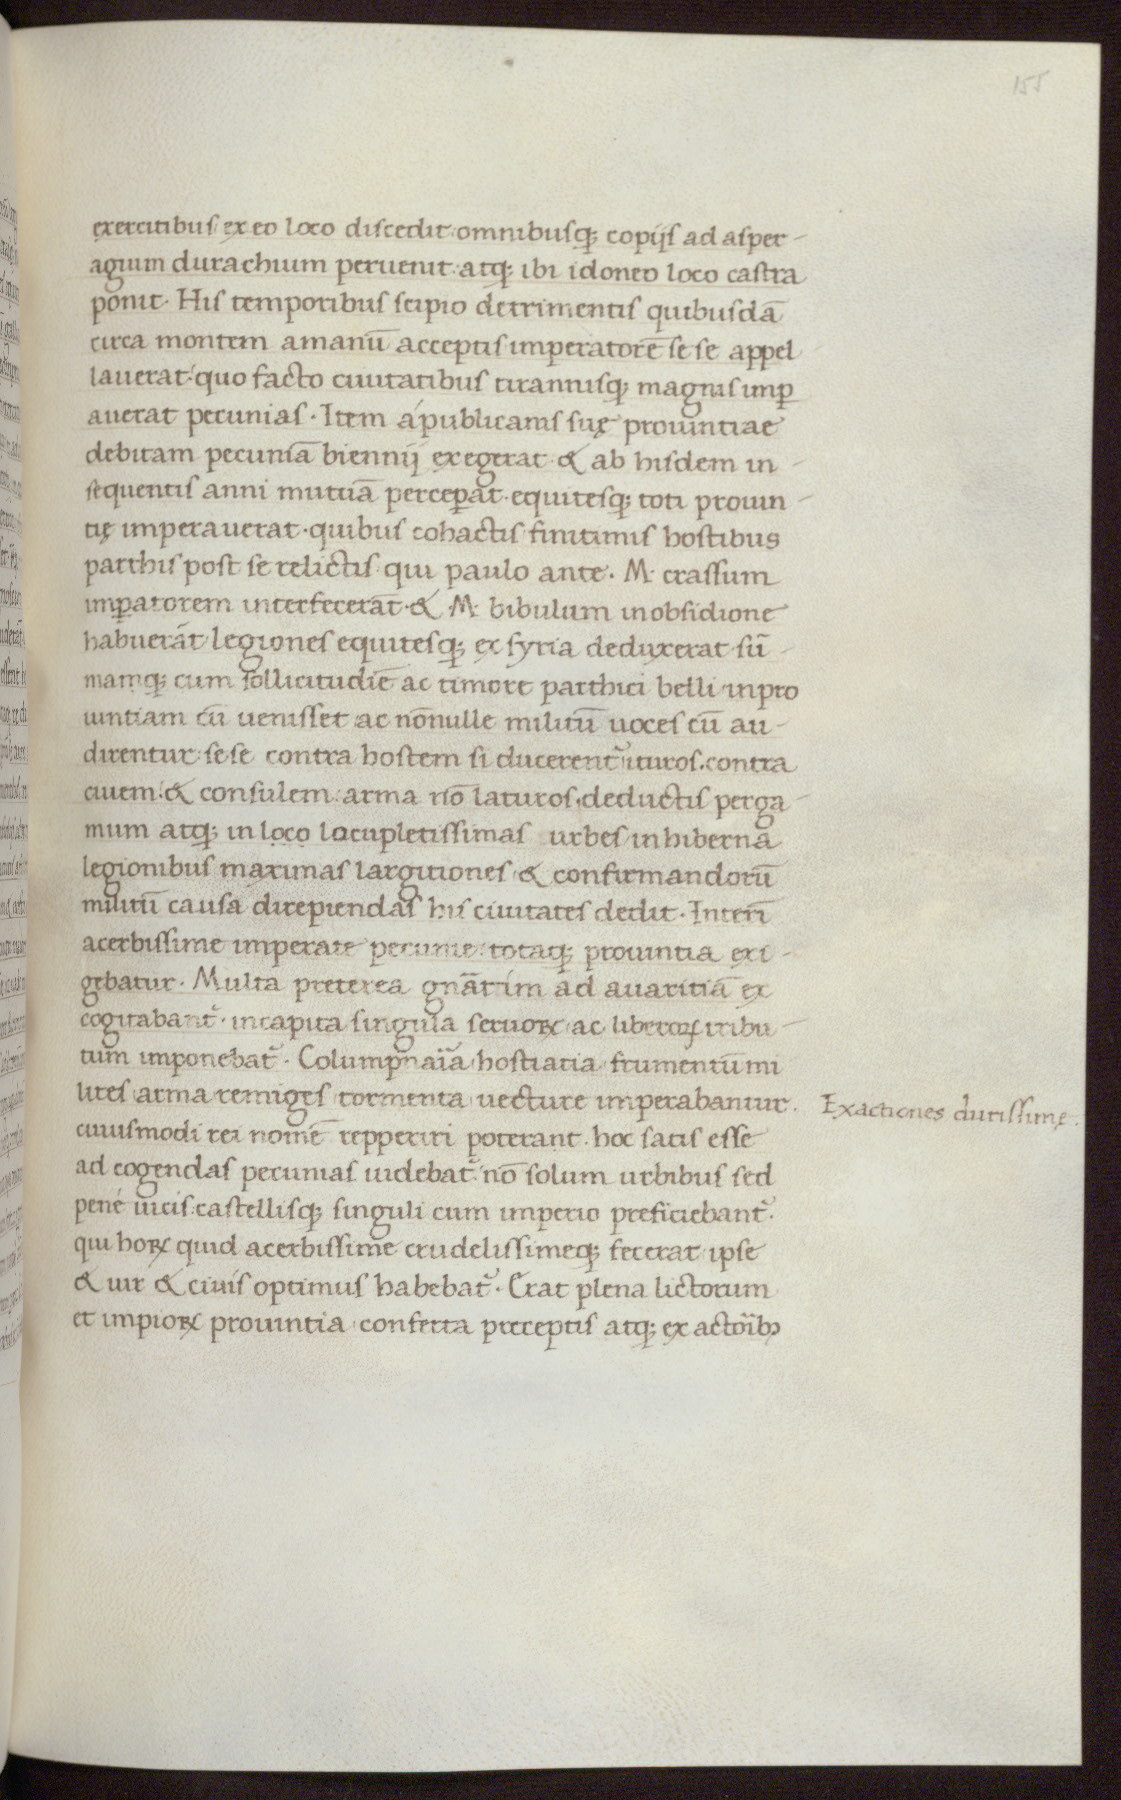 155
exercitibus ex eo loco discedit omnibusq; copijs ad asper-
agium durachium peruenit· atq; ibi idoneo loco castra
ponit· His temporibus scipio detrimentis quibusdā
circa montem amanū acceptis imperatorē se se appel
lauerat· quo facto ciuitatibus tirannisq; magnas imꝑ
auerat pecunias· Item á publicanis suę prouintiae
debitam pecuniā biennij exegerat & ab hisdem in-
sequentis anni mutuā perceꝑat· equitesq; toti prouin-
tię imperauerat· quibus cohactis finitimis hostibus
parthis post se relictis qui paulo ante· M· crassum
imꝑatorem interfecerāt· & M· bibulum in obsidione
habuerāt legiones equitesq; ex syria deduxerat sū-
mamq; cum sollicitudīe ac timore parthici belli in pro
uintiam cū uenisset ac nōnulle militū uoces cū au-
direntur se se contra hostem si ducerent᷑ ituros· contra
ciuem· & consulem arma nō laturos· deductis perga-
mum atq; in loco locupletissimas urbes in hiberna
legionibus maximas largitiones & confirmandorū
militū causa diripiendas his ciuitates dedit· Interī
acerbissime imperate pecunie totaq; prouintia exi-
gebatur· Multa preterea gn̄atim ad auaritiā ex
cogitabant᷑· in capita singula seruoꝝ ac liberoꝝ tribu-
tum imponebat᷑· Columpnaīa hostiaria frumentū mi
lites arma remiges tormenta uecture imperabantur·
Exactiones durissimę·
cuiusmodi rei nomē repperiri poterant· hoc satis esse
ad cogendas pecunias uidebat᷑· nō solum urbibus sed
pené uicis castellisq; singuli cum imperio preficiebant᷑·
qui hoꝝ quid acerbissime crudelissimeq; fecerat ipse
& uir & ciuis optimus habebat᷑· Erat plena lictorum
et impioꝝ prouintia conferta preceptis atq; exactoībꝫ